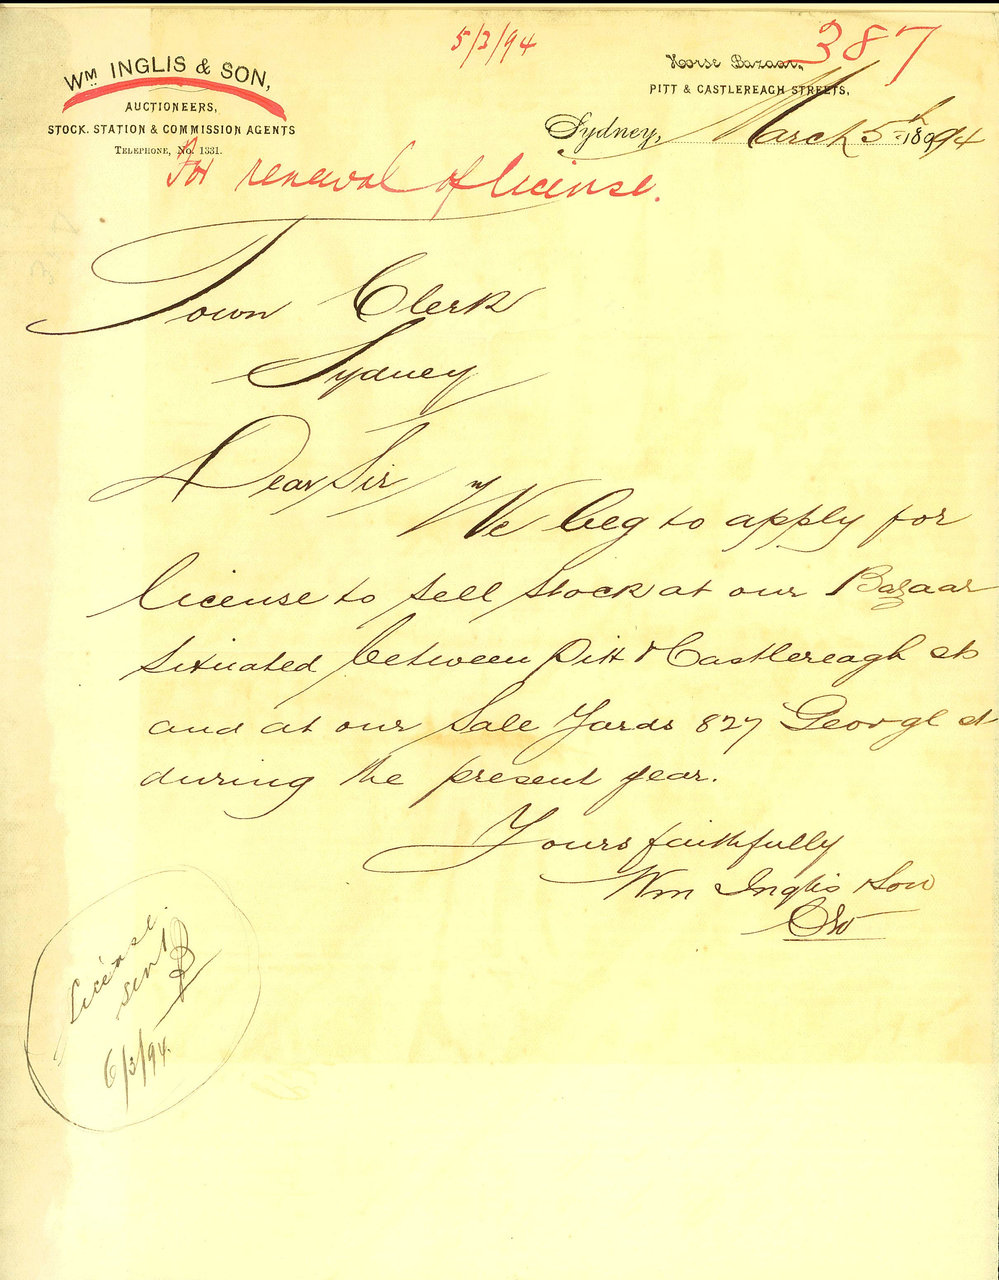 5/3/94
387
Wm INGLIS & SON,
AUCTIONEERS,
STOCK. STATION & COMMISSION AGENTS
TELEPHONE, No. 1331.
Horse Bazaar,
PITT & CASTLEREAGH STREETS,
Sydney, March 5th 1894
For renewal of license.
Town Clerk
Sydney
Dear Sir
We beg to apply for
license to sell stock at our Bazaar
situated between Pitt & Castlereagh sts
and at our Sale Yards 827 George st
during the present year.
Yours faithfully
Wm Inglis & Son
License
sent
6/3/94.